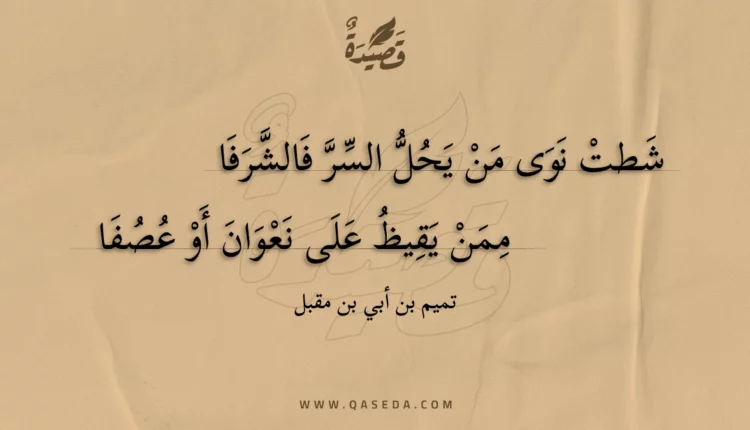 قَصِيْدَةٌ
شَطتْ نَوَى مَنْ يَحُلُّ السِّرَّ فَالشَّرَفَا
مِمَنْ يَقِيظُ عَلَى نَعْوَانَ أَوْ عُصُفَا
تميم بن أبي بن مقبل
WWW.QASEDA.COM